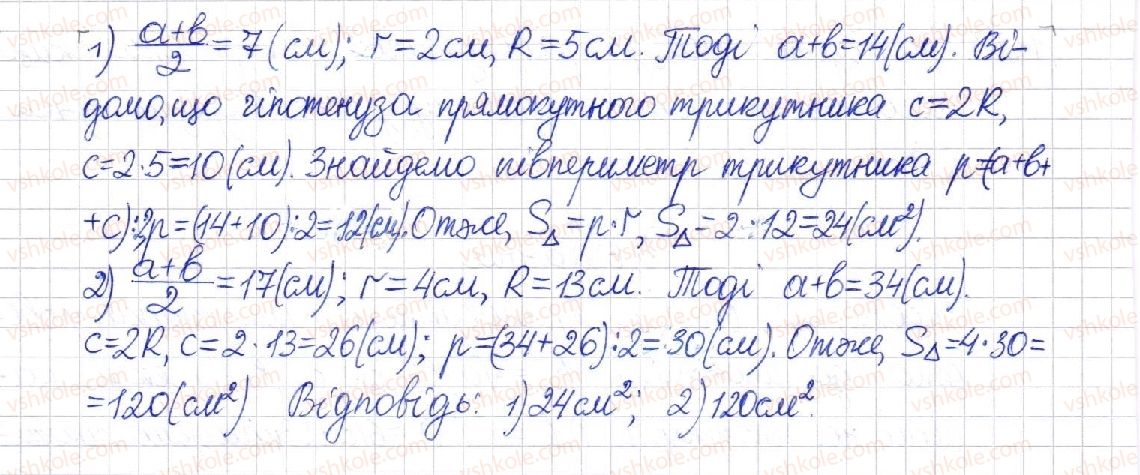 1) (a+b)/2 = 7 (см); r = 2 см, R = 5 см. Тоді a+b=14(см). Ві-
домо, що гіпотенуза прямокутного трикутника c=2R,
c=2·5=10(см). Знайдемо півпериметр трикутника p=(a+b+
+c):2, p=(14+10):2=12(см). Отже, S△=p·r, S△=2·12=24(см²).
2) (a+b)/2 = 17(см); r=4см, R=13см. Тоді a+b=34(см).
c=2R, c=2·13=26(см); p=(34+26):2=30(см). Отже, S△=4·30=
=120(см²) Відповідь: 1) 24см²; 2) 120см².